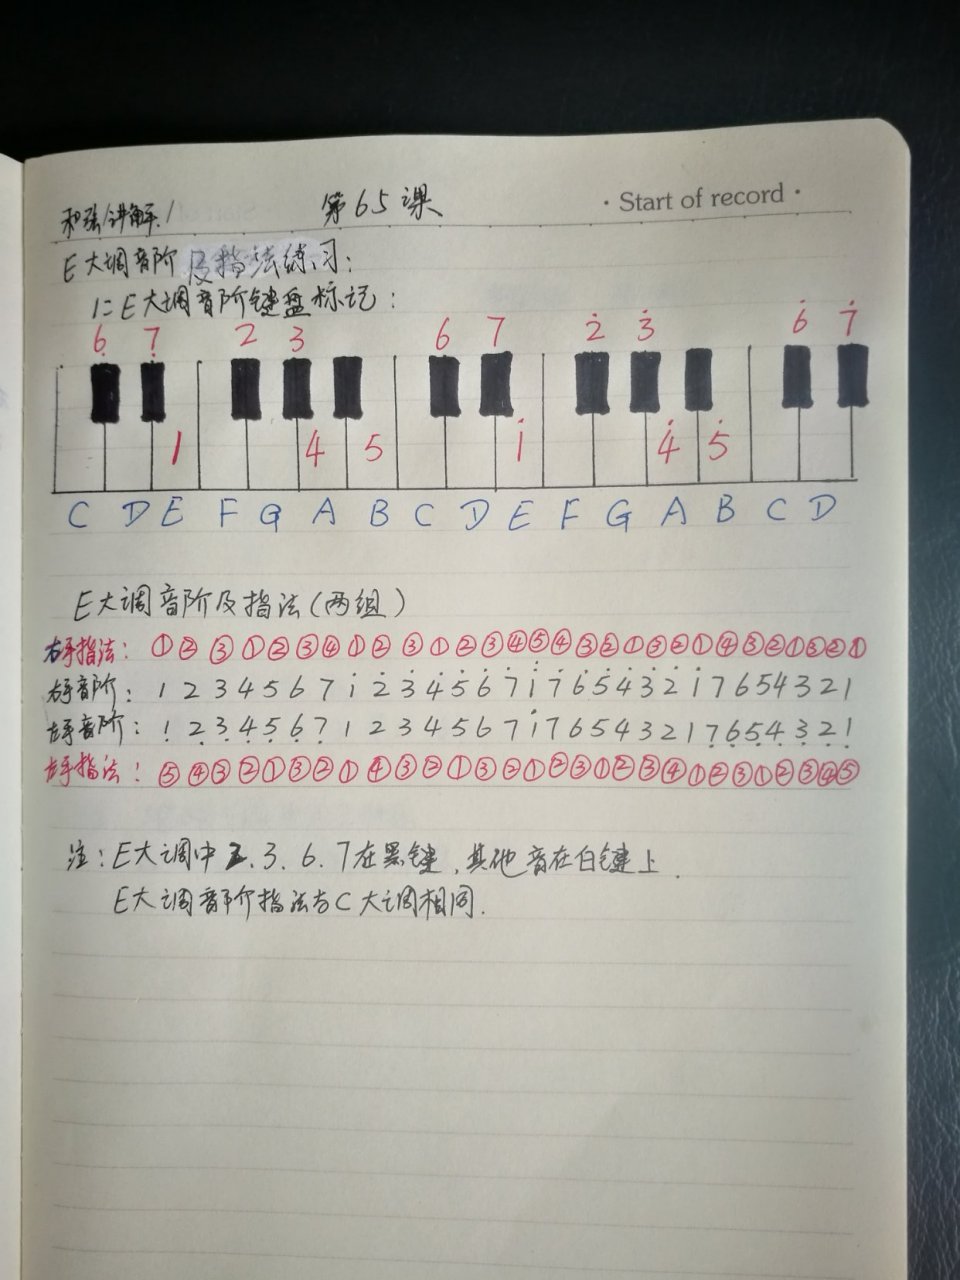 和弦讲解1 第65课 · Start of record ·
E大调音阶及指法练习:
1=E大调音阶键盘标记:
6̣ 7̣ 2 3 6 7 2̇ 3̇ 6̇ 7̇
1 4 5 1̇ 4̇ 5̇
C D E F G A B C D E F G A B C D
E大调音阶及指法(两组)
右手指法: ① ② ③ ① ② ③ ④ ① ② ③ ① ② ③ ④ ⑤ ④ ③ ② ① ③ ② ① ④ ③ ② ① ③ ② ①
右手音阶: 1 2 3 4 5 6 7 1̇ 2̇ 3̇ 4̇ 5̇ 6̇ 7̇ 1̈ 7̇ 6̇ 5̇ 4̇ 3̇ 2̇ 1̇ 7 6 5 4 3 2 1
左手音阶: 1̣ 2̣ 3̣ 4̣ 5̣ 6̣ 7̣ 1 2 3 4 5 6 7 1̇ 7 6 5 4 3 2 1 7̣ 6̣ 5̣ 4̣ 3̣ 2̣ 1̣
左手指法: ⑤ ④ ③ ② ① ③ ② ① ④ ③ ② ① ③ ② ① ② ③ ① ② ③ ④ ① ② ③ ① ② ③ ④ ⑤
注:E大调中2.3.6.7在黑键,其他音在白键上.
E大调音阶指法与C大调相同.